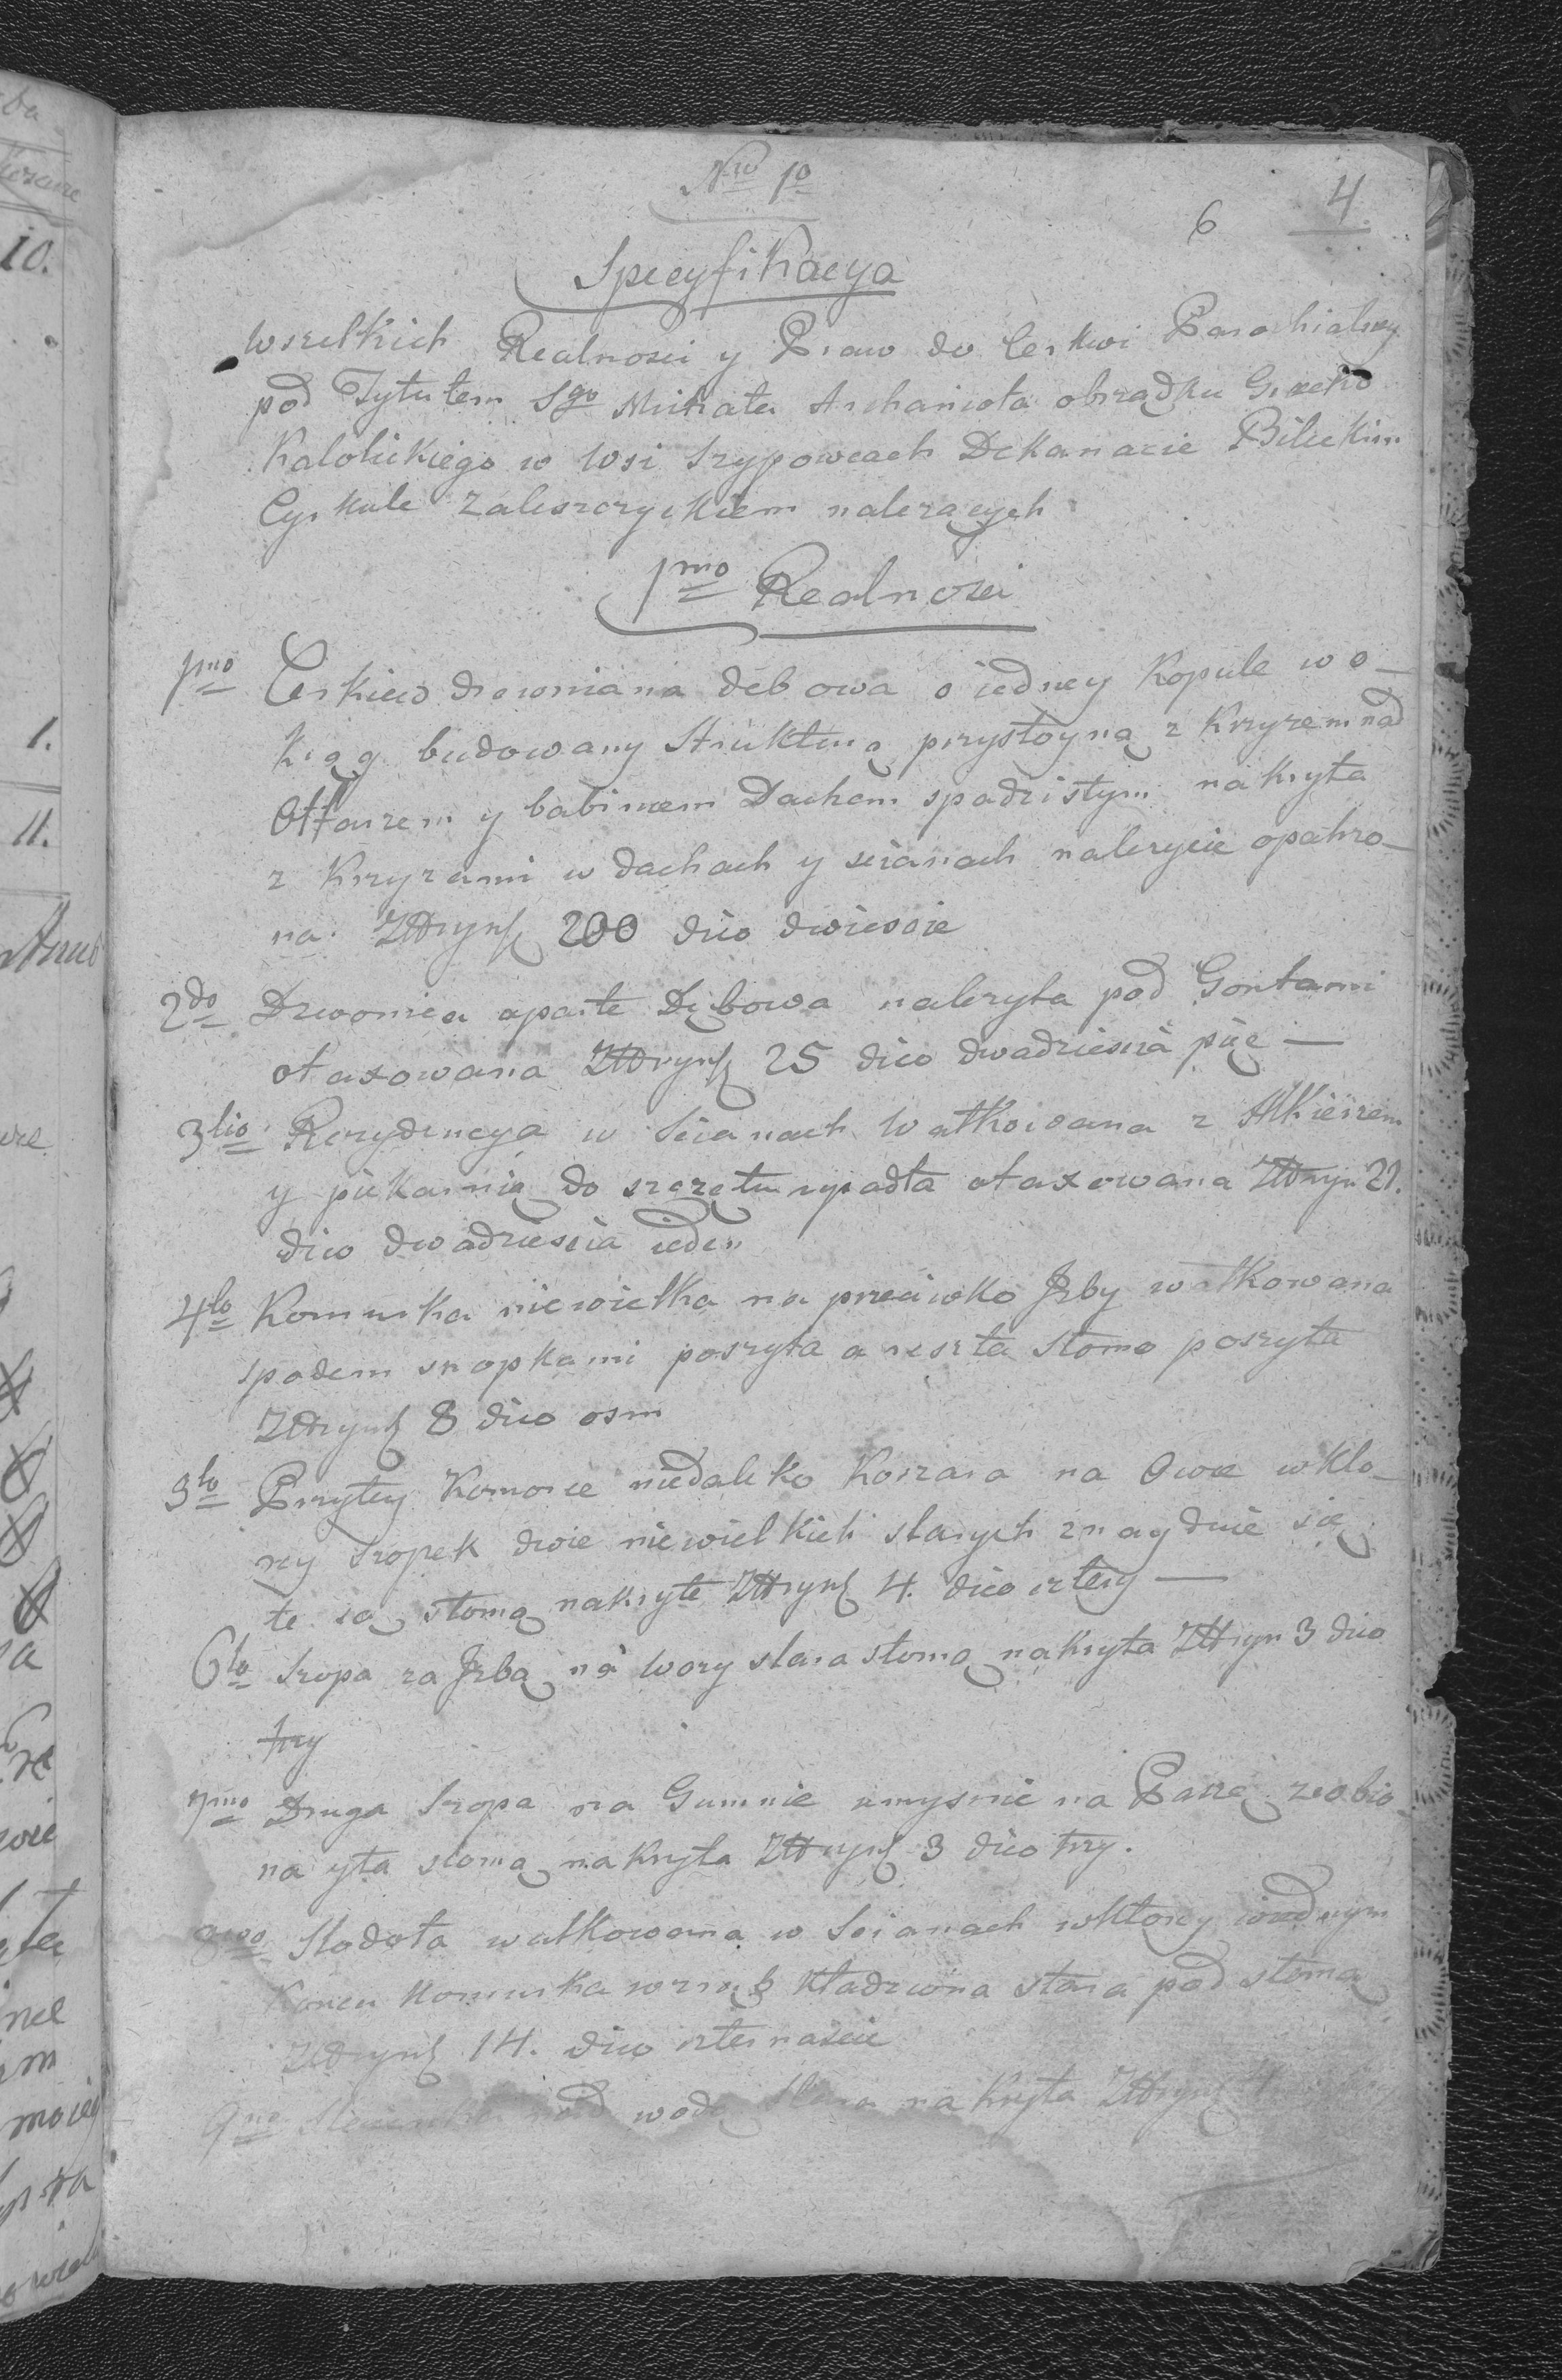 Nro 1o
6 4
Specyfikacya
wszelkich Realnosci y Praw do Cerkwi Parochialney
pod Tytułem Sgo Michała Archanioła obrządku Graeko
Katolickiego w Wsi Szypowcach Dekanacie Bileckim
Cyrkule Zaleszczyckiem należących
1mo Realnosci
1mo Cerkiew drewniana dębowa o iedney Kopule wo-
krąg budowany Strukturą przystoyną z Krzyżem nad
Ołtarzem y babincem Dachem spadzistym nakryta
z Krzyżami w dachach y scianach należycie opatrzo-
na. ZłRynsk 200 dico dwiescie
2do Dzwonica oparte Dębowa należyta pod Gontami
otaxowana ZłRynsk 25 dico dwadziescia pię —
3tio Rezydencya w Scianach Wałkowana z Alkierzem
y piekarnią do szczętu upadła otaxowana ZłRyn 21.
dico dwadziescia ieden
4to Komurka niewielka na przeciwko Izby wałkowana
spodem snopkami poszyta a reszta słomo poszyta
ZłRynsk 8 dico osm
5to Przytey Komorce niedaleko Koszara na Owce wKto-
rey Szopek dwie niewielkich starych znayduie się
te są słomą nakryte ZłRynsk 4. dico cztery —
6to Szopa za Izbą na Wozy stara słomą nakryta ZłRyn 3 dico
trzy
7mo Druga Szopa na Gumnie umysnie na Paszę zrobio-
na yta słomą nakryta ZłRynsk 3 dico trzy.
8vo Stodoła wałkowana w Scianach wktorey wiednym
Koncu Komurka wzrąb kładziona stara pod słomą
ZłRynsk 14. dico czternascie
9no nad wodą Stara nakryta ZłRynsk 4